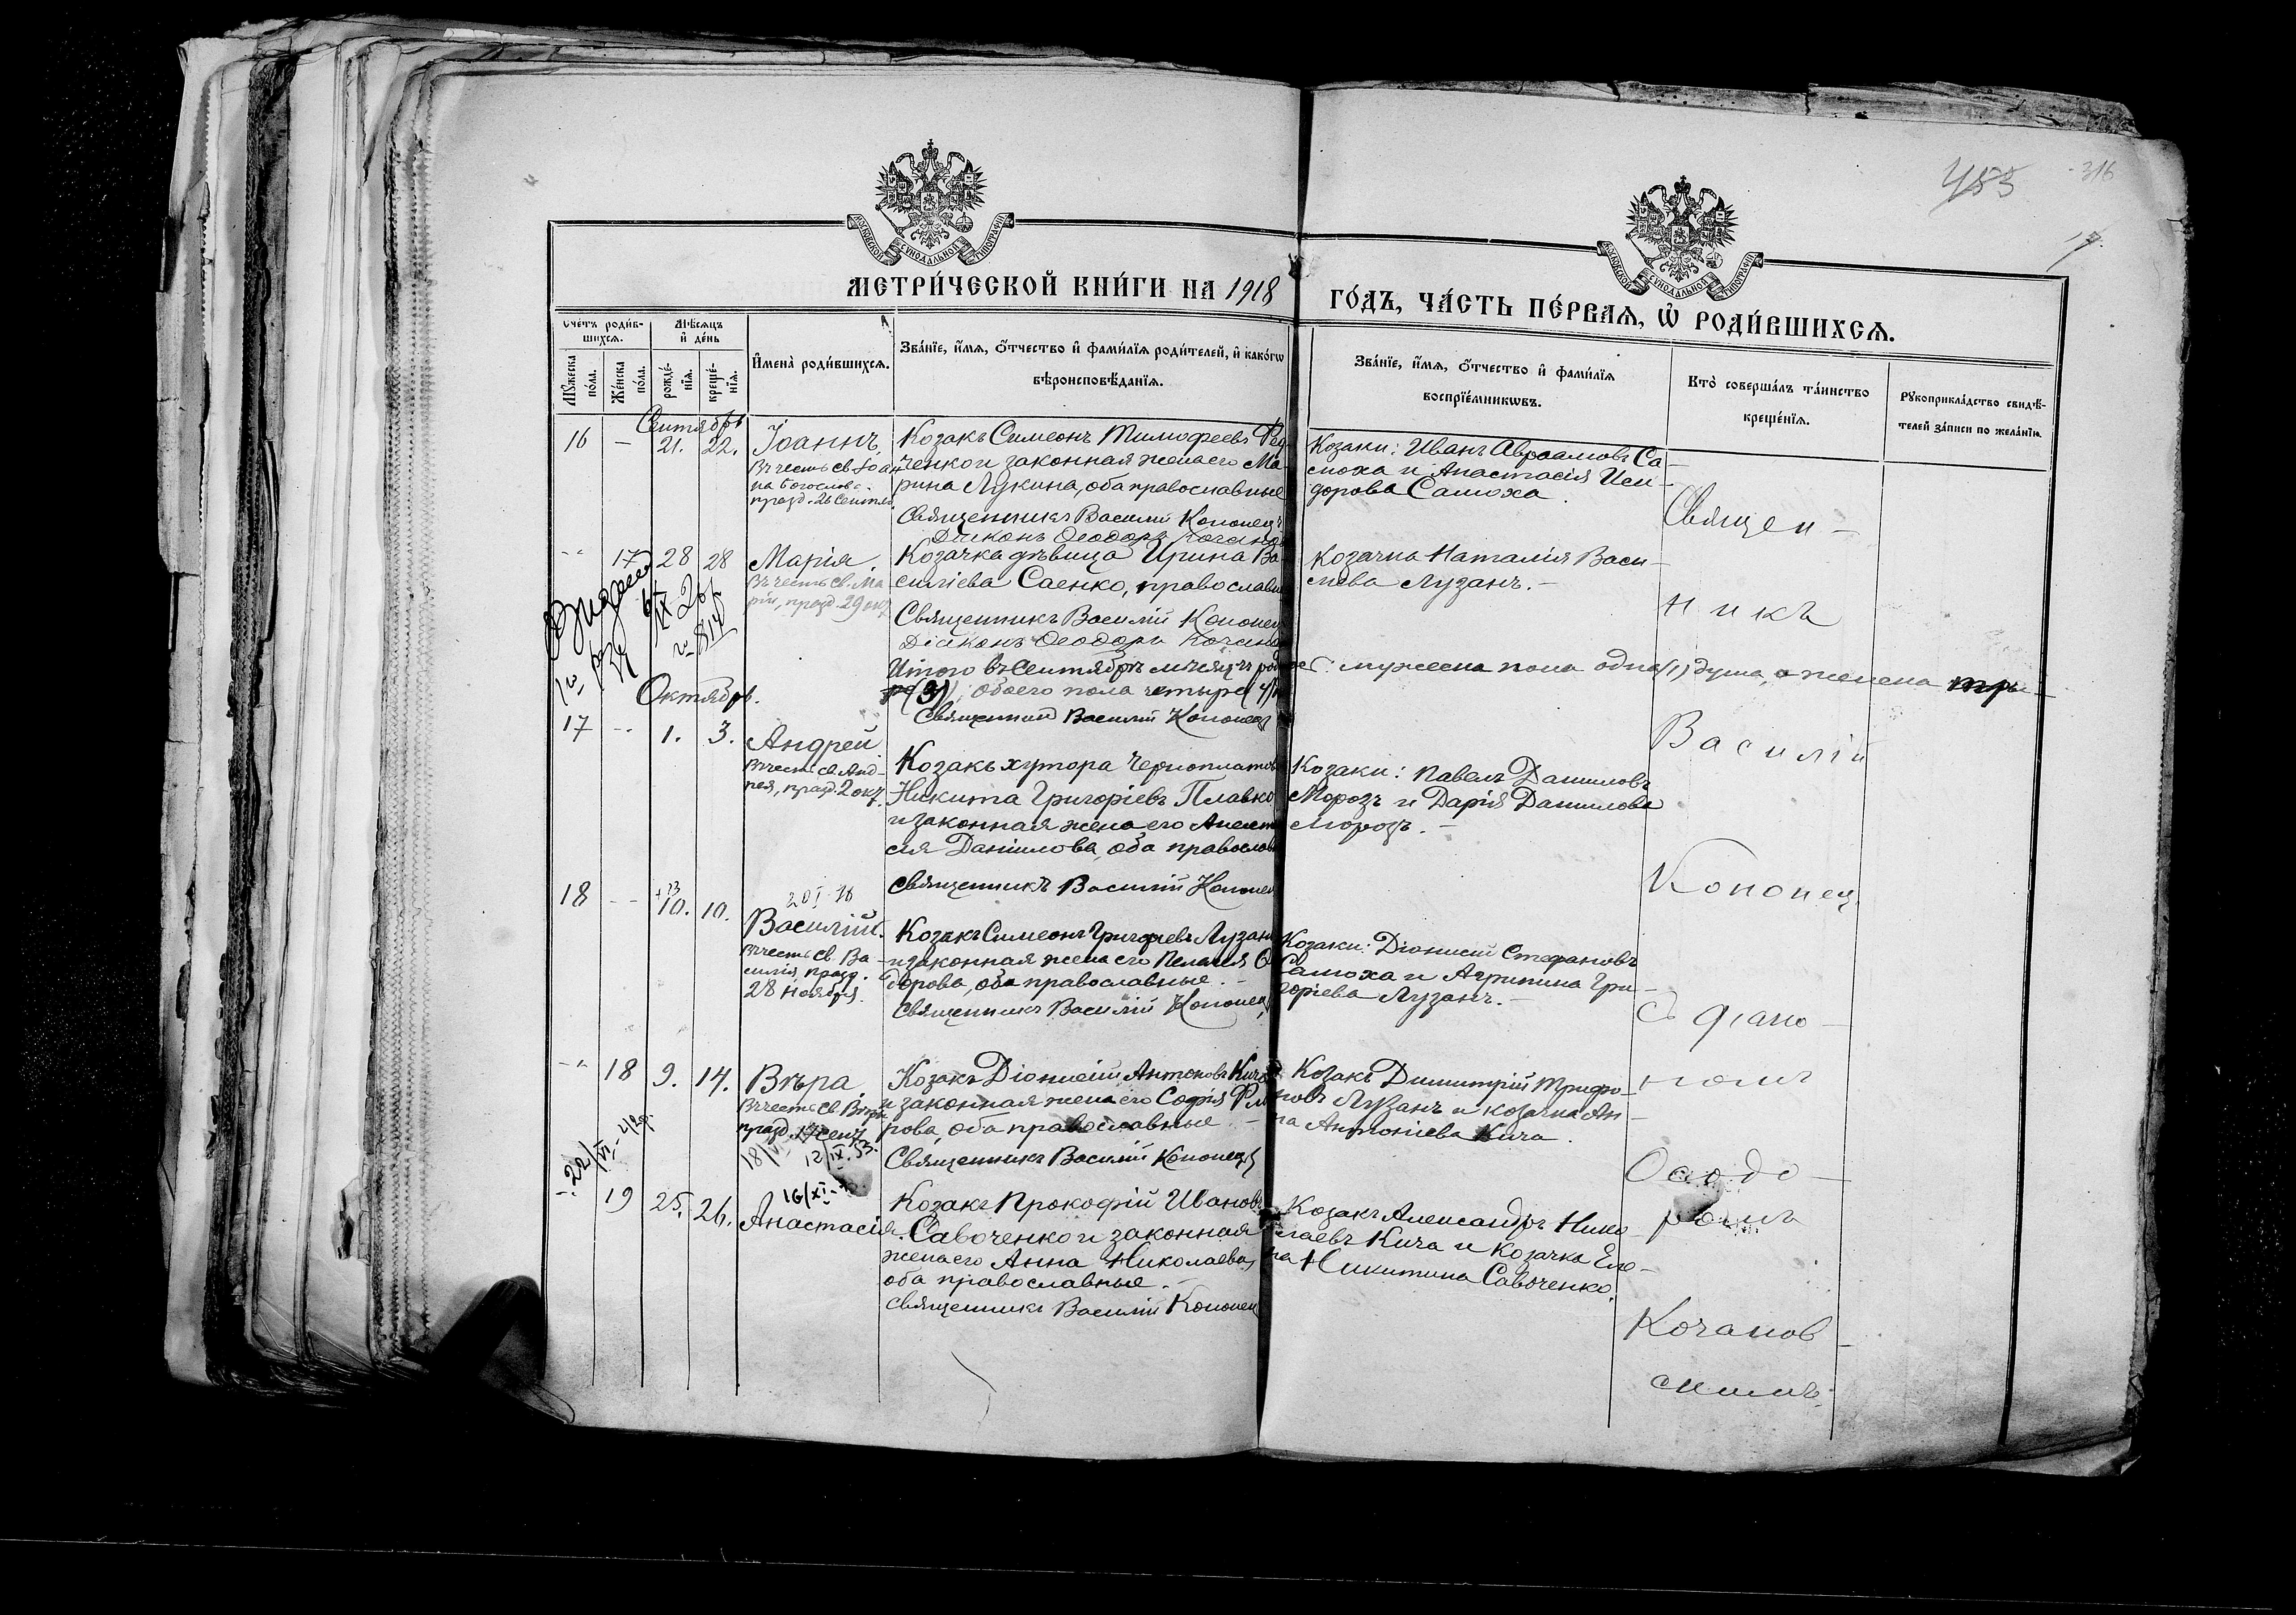 483
316
17.
МОСКОВСКОЙ СѴНОДАЛЬНОЙ ТИПОГРАФІИ
МОСКОВСКОЙ СѴНОДАЛЬНОЙ ТИПОГРАФІИ
МЕТРИ́ЧЕСКОЙ КНИ́ГИ НА 1918
ГО́ДЪ, ЧА́СТЬ ПЕ́РВАѦ, Ѡ҆ РОДИ́ВШИХСѦ.
Счетъ роди́в-
шихсѧ.
Мѣсѧцъ
и҆ де́нь
Мꙋ́жеска по́ла.
Же́нска по́ла.
рожде́-
нїѧ.
креще́-
нїѧ.
И҆мена̀ роди́вшихсѧ.
Зва́нїе, и҆́мѧ, ѻ҆́тчество и҆ фами́лїѧ роди́телей, и҆ како́гѡ
вѣроисповѣ́данїѧ.
Зва́нїе, и҆́мѧ, ѻ҆́тчество и҆ фами́лїѧ
воспрїе́мникѡвъ.
Кто̀ соверша́лъ та́инство
креще́нїѧ.
Рꙋкоприкла́дство свидѣ́-
телей за́писи по жела́нїю.
Сентябрь
16 — 21. 22. Іоаннъ.
Въ честь св. Іоан
на Богослова.
празд. 26 Сентяб.
Козакъ Симеонъ Тимофеевъ
ченко и законная жена его Ма-
рина Лукина, оба православные
Священникъ Василій Кононецъ
Діаконъ Ѳеодоръ
Козаки: Иванъ Авраамовъ Са-
моха и Анастасія Иси-
дорова Самоха.
17 28 28 Марія.
Въ честь св. Ма
ріи, празд. 29 окт
Козачка дѣвица Ирина Ва-
силіева Саенко, православн
Священникъ Василій Кононец
Діаконъ Ѳеодоръ
Козачка Наталія Васи-
лиева Лузанъ.-
Итого въ Сентябрѣ мѣсяцѣ мужеска пола одна (1) душа, а женска три
(3), обоего пола четыре
Священник Василій Кононец
Октябрь.
17 1. 3. Андрей
Въ честь св. Анд-
рея, празд. 2 окт.
Козакъ хутора
Никита Григоріевъ Плавко
и законная жена его
сія Даніилова, оба православ
Священникъ Василій Кононец
Козаки: Павелъ Даниловъ
Морозъ и Дарія Данилова
Морозъ.-
18 10. 10.
Василій.
Въ честь св. Ва-
силія, празд.
28 Ноября.
Козакъ Симеонъ Григоріевъ Лузан
и законная жена его Пелагія Ѳ
дорова, оба православные.-
Священникъ Василій Кононец
Козаки: Діонисій Стефановъ
Самоха и Агрипина Гри-
горіева Лузанъ.-
18 9. 14. Вѣра
Въ честь св. Вѣры
празд. 17 сент.
12/IX.53.
Козакъ Діонисій Антоновъ Кича
и законная жена его Софія
рова, оба православные.-
Священникъ Василій Кононец
Козакъ Димитрій Трифо-
новъ Лузанъ и козачка Ан-
на Антоніева Кича.
19 25. 26. Анастасія.
Козакъ Прокофій Ивановъ
Савоченко и законная
жена его Анна Николаева,
оба православные.-
Священникъ Василій Кононец
Козакъ Александръ Нико-
лаевъ Кича и Козачка Еле-
на Никитина Савоченко.
Священ-
никъ
Василій
Кононец
съ діако-
номъ
Ѳеодо-
ромъ
Кочанов-
скимъ.